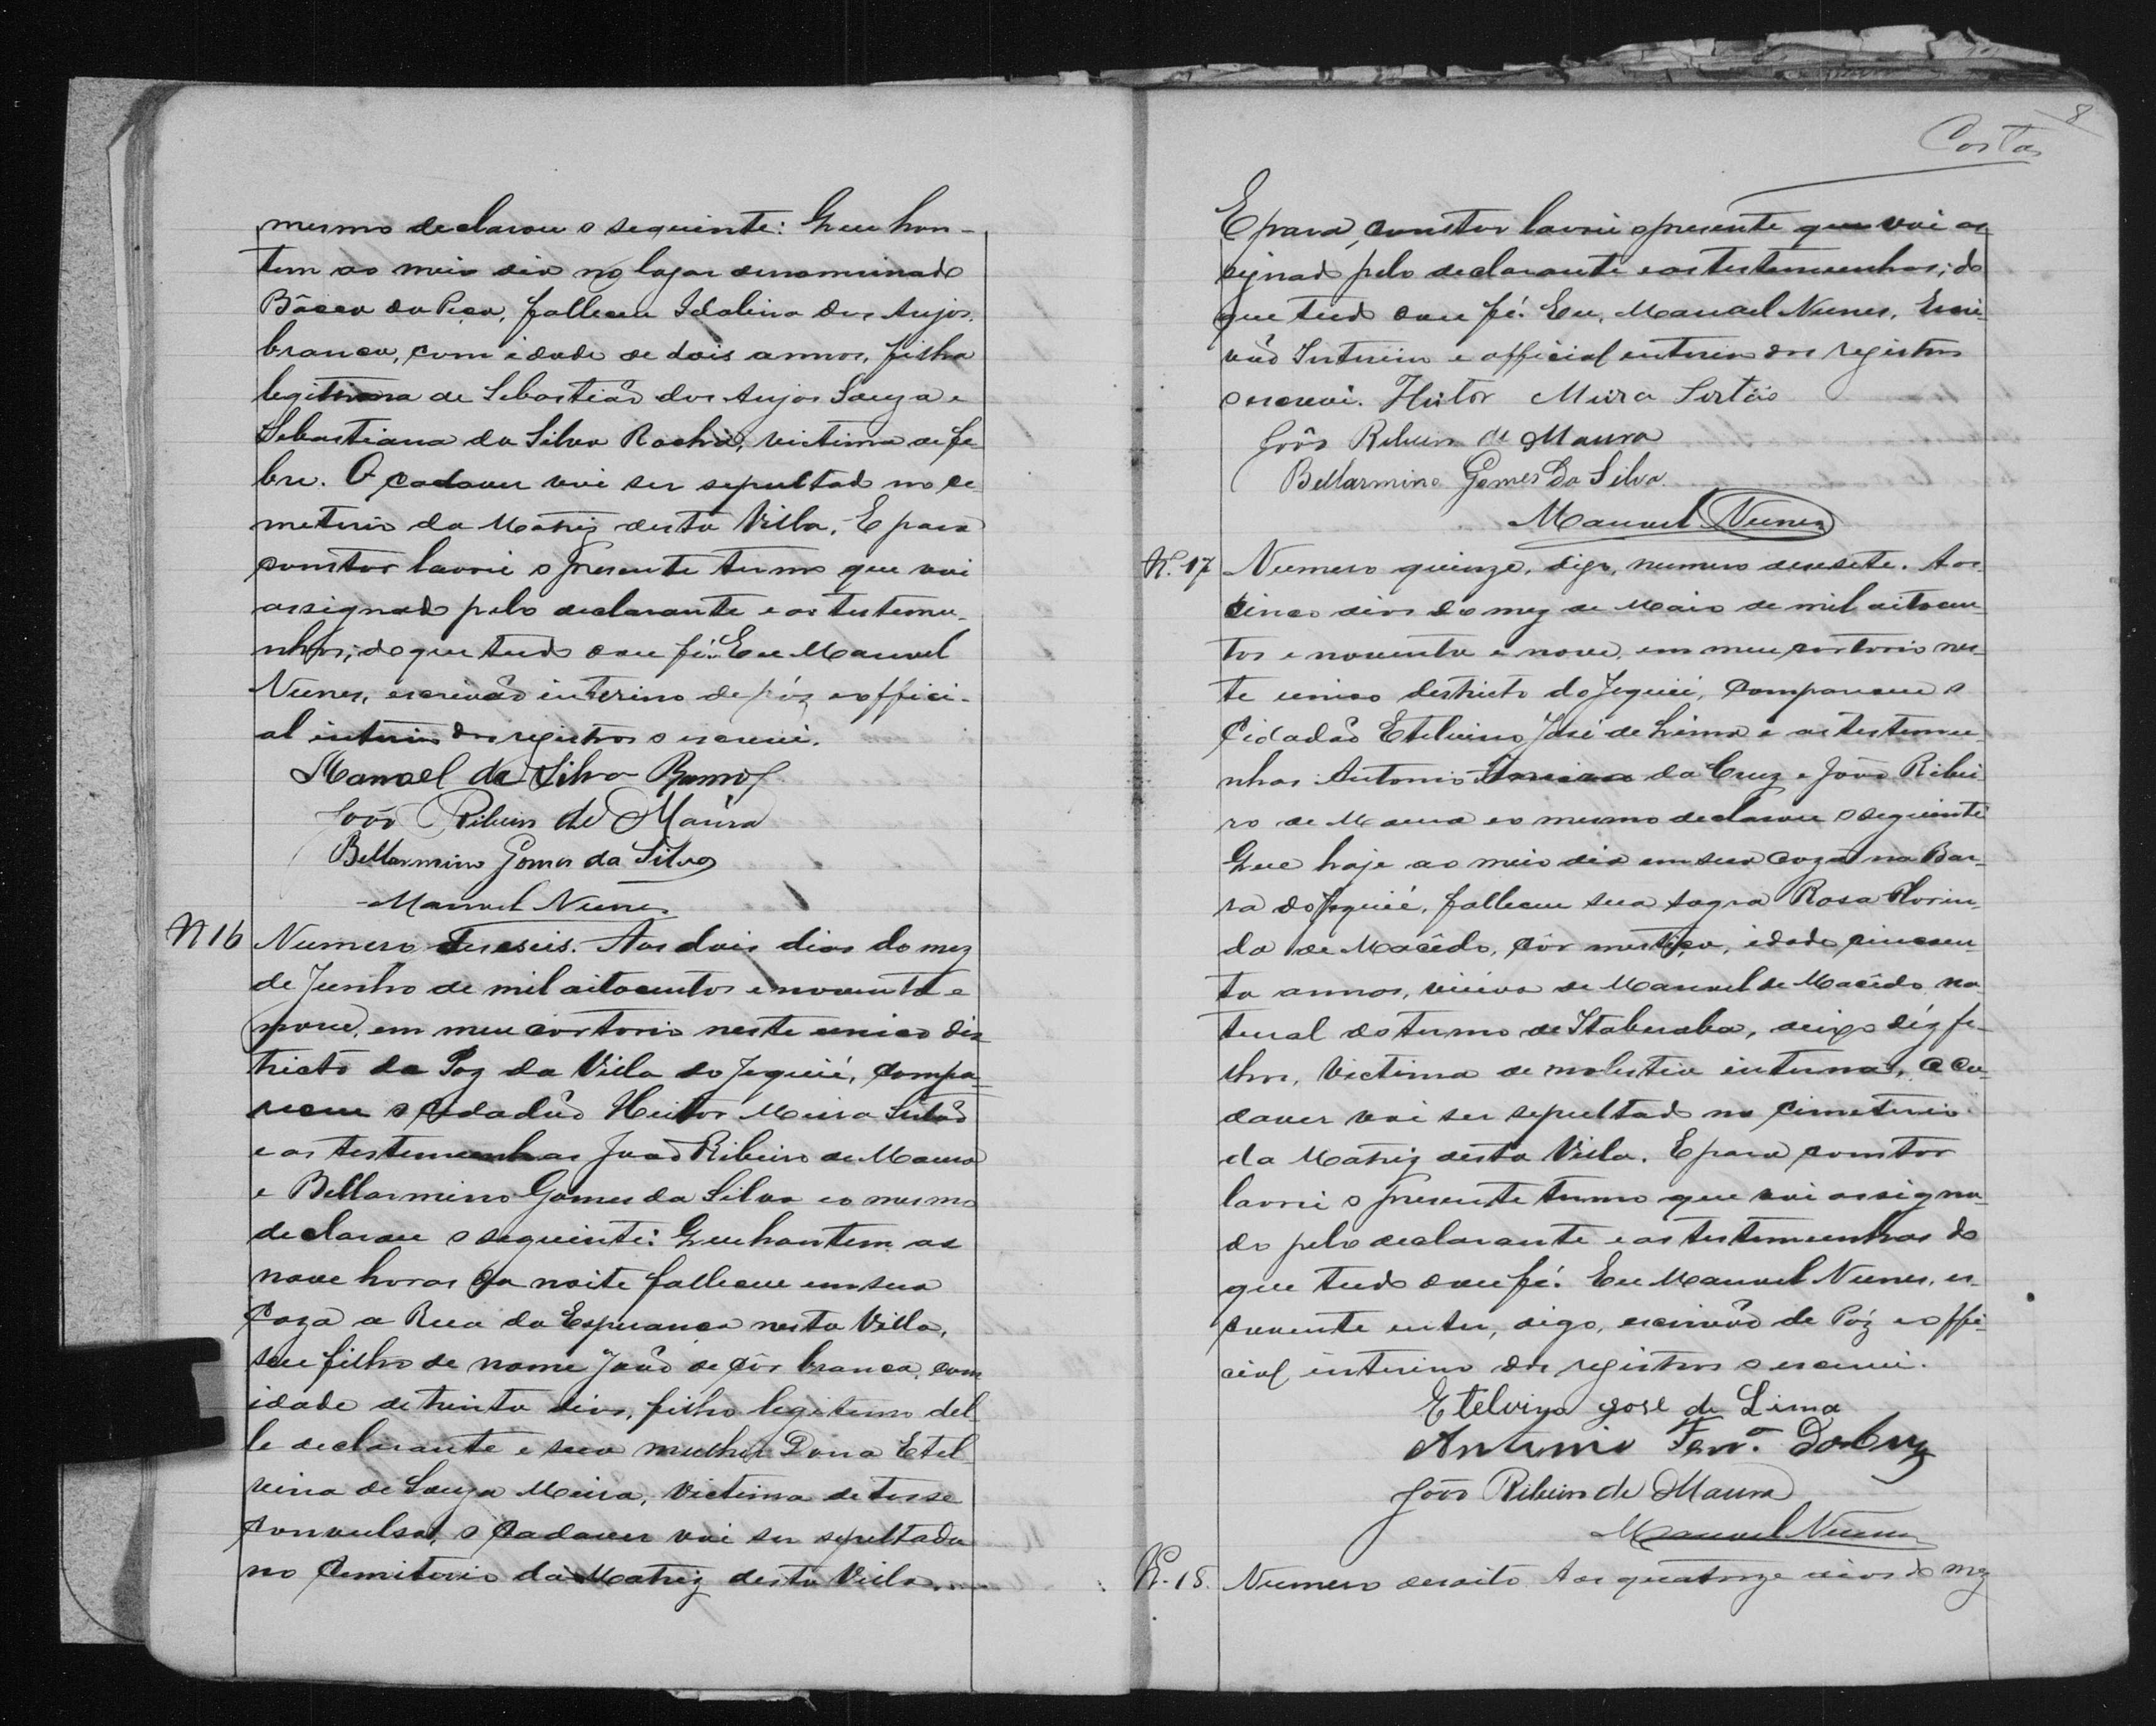 mesmo declarou o seguinte: Que hon-
tem ao meio dia no logar denominado
Bôcca da Peça, falleceu Idalina dos Anjos,
branca, com idade de dois annos, filha
legitima de Sebastião dos Anjos Souza e
Sebastiana da Silva Rocha, victima de fe-
bre. O cadaver vai ser sepultado no ce-
miterio da Matriz desta Villa. E para
constar lavrei o presente termo que vai
assignado pelo declarante e as testemu-
nhas; do que tudo dou fé. Eu Manuel
Nunes, escrivão interino de páz e offici-
al interino dos registros o escrevi.
Manoel da Silva Ramos
João Ribeiro de Maura
Bellarmino Gomes da Silva
Manuel Nunes
N 16 Numero deseseis. Aos dois dias do mez
de Junho de mil oitocentos e noventa e
nove, em meu cartorio neste unico dis-
tricto de Paz da Villa do Jequié, compa-
receu o cidadão Heitor Meira Sertão
e as testemunhas João Ribeiro de Maura
e Bellarmino Gomes da Silva e o mesmo
declarou o seguinte: Que hontem as
nove horas da noite falleceu em sua
caza a Rua da Esperança nesta Villa,
seu filho de nome João de côr branca, com
idade de trinta dias, filho legitimo del-
le declarante e sua mulher Dona Etel-
vina de Souza Meira, victima de tosse
convulsa, o cadaver vai ser sepultado
no Cemiterio da Matriz desta Villa....
8
Costa
E para constar lavrei o presente que vai as-
signado pelo declarante e as testemunhas; do
que tudo dou fé. Eu, Manuel Nunes, Escri-
vão Interino e official interino dos registros
o escrevi. Heitor Meira Sertão
João Ribeiro de Maura
Bellarmino Gomes Da Silva.
Manuel Nunes
N. 17 Numero quinze, digo, numero desesete. Aos
cinco dias do mez de Maio de mil oitocen-
tos e noventa e nove, em meu cartorio nes-
te unico destricto do Jequié, compareceu o
Cidadão Etelvino José de Lima e as testemu-
nhas Antonio da Cruz e João Ribei-
ro de Maura e o mesmo declarou o seguinte
Que hoje ao meio dia em sua caza na Bar-
ra do Jequié, falleceu sua sogra Rosa Florin-
da de Macêdo, côr mestiça, idade cincoen-
ta annos, viuva de Manuel de Macêdo, na-
tural do termo de Itaberaba, deixa déz fi-
lhos, victima de molestia interna, o ca-
daver vai ser sepultado no cimiterio
da Matriz desta Villa. E para constar
lavrei o presente termo que vai assigna-
do pelo declarante e as testemunhas do
que tudo dou fé. Eu Manuel Nunes, es-
crevente inter, digo, escrivão de Páz e offi-
cial interino dos registros o escrevi.
Etelvino José de Lima
Antonio Ferrª Da Cruz
João Ribeiro de Maura
Manuel Nunes
N. 18. Numero desoito Aos quatorze dias do mez